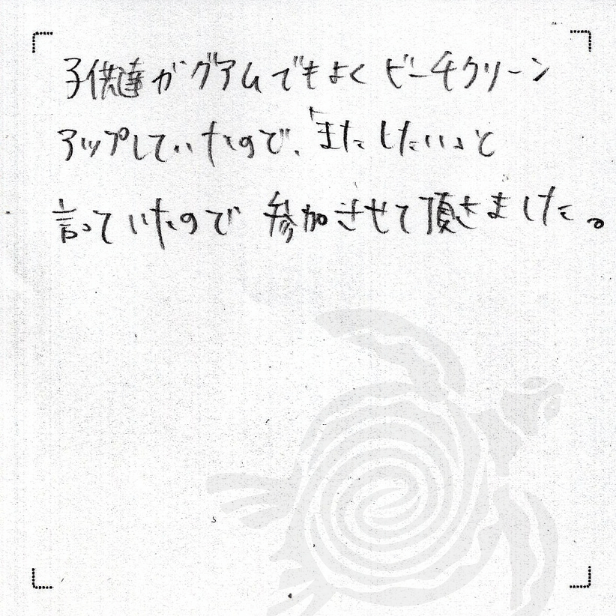 子供達がグアムでもよくビーチクリーン
アップしていたので、「またしたい」と
言っていたので 参加させて頂きました。